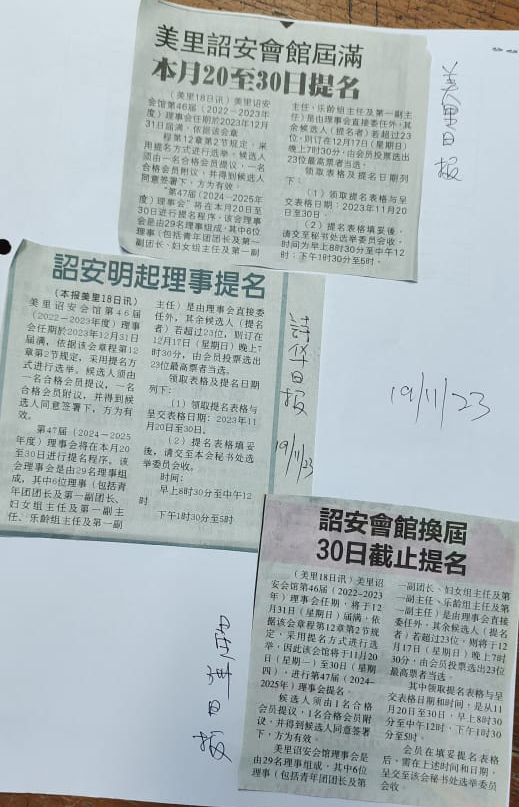 美里詔安會館屆滿
本月20至30日提名
（美里18日讯）美里诏安
会馆第46届（2022-2023年
度）理事会任期於2023年12月
31日届满，依据该会章
程第12章第2节规定，采
用提名方式进行选举。候选人
须由一名合格会员提议，一名
合格会员附议，并得到候选人
同意签署下，方为有效。
“第47届（2024-2025年
度）理事会”将在本月20日至
30日进行提名程序。该会理事
会是由29名理事组成，其中6位
理事（包括青年团团长及第一
副团长、妇女组主任及第一副
主任、乐龄组主任及第一副主
任）是由理事会直接委任外，其
余候选人（提名者）若超过23
位，则订在12月17日（星期日）
晚上7时30分，由会员投票选出
23位最高票者当选。
领取表格及提名日期列
下：
（1）领取提名表格与呈
交表格日期：2023年11月20
日至30日
（2）提名表格填妥後，
请交至秘书处选举委员会收，
时间为早上8时30分至中午12
时；下午1时30分至5时。
美里日报
詔安明起理事提名
（本报美里18日讯）
美里诏安会馆第46届
（2022-2023年度）理事
会任期於2023年12月31日
届满，依据该会章程第12
章第2节规定，采用提名方
式进行选举。候选人须由
一名合格会员提议，一名
合格会员附议，并得到候
选人同意签署下，方为有
效。
第47届（2024-2025
年度）理事会将在本月20日
至30日进行提名程序。该
会理事会是由29名理事组
成，其中6位理事（包括青
年团团长及第一副团长、
妇女组主任及第一副主
任、乐龄组主任及第一副
主任）是由理事会直接委
任外，其余候选人（提名
者）若超过23位，则订在
12月17日（星期日）晚上7
时30分，由会员投票选出
23位最高票者当选。
领取表格及提名日期
列下：
（1）领取提名表格与
呈交表格日期：2023年11
月20日至30日。
（2）提名表格填妥
後，请交至本会秘书处选
举委员会收。
时间：
早上8时30分至中午12
时
下午1时30分至5时
詩华日报
19/11/23
19/11/23
詔安會館換屆
30日截止提名
（美里18日讯）美里诏
安会馆第46届（2022-2023
年）理事会任期，将于12
月31日（星期日）届满，依
据该会章程第12章第2节规
定，采用提名方式进行选
举，因此该会馆将于11月20
日（星期一）至30日（星期
四），进行第47届（2024-
2025年）理事会提名。
候选人须由1名合格
会员提议，1名合格会员附
议，并得到候选人同意签署
下，方为有效。
美里诏安会馆理事会是
由29名理事组成，其中6位
理事（包括青年团团长及第
一副团长、妇女组主任及第
一副主任、乐龄组主任及第
一副主任）是由理事会直接
委任外，其余候选人（提名
者）若超过23位，则将于12
月17日（星期日）晚上7时
30分，由会员投票选出23位
最高票者当选。
其中领取提名表格与呈
交表格日期和时间，是从11
月20日至30日，早上8时30
分至中午12时，下午1时30
分至5时。
会员在填妥提名表格
后，需在上述时间和日期，
呈交至该会秘书处选举委员
会收。
日报